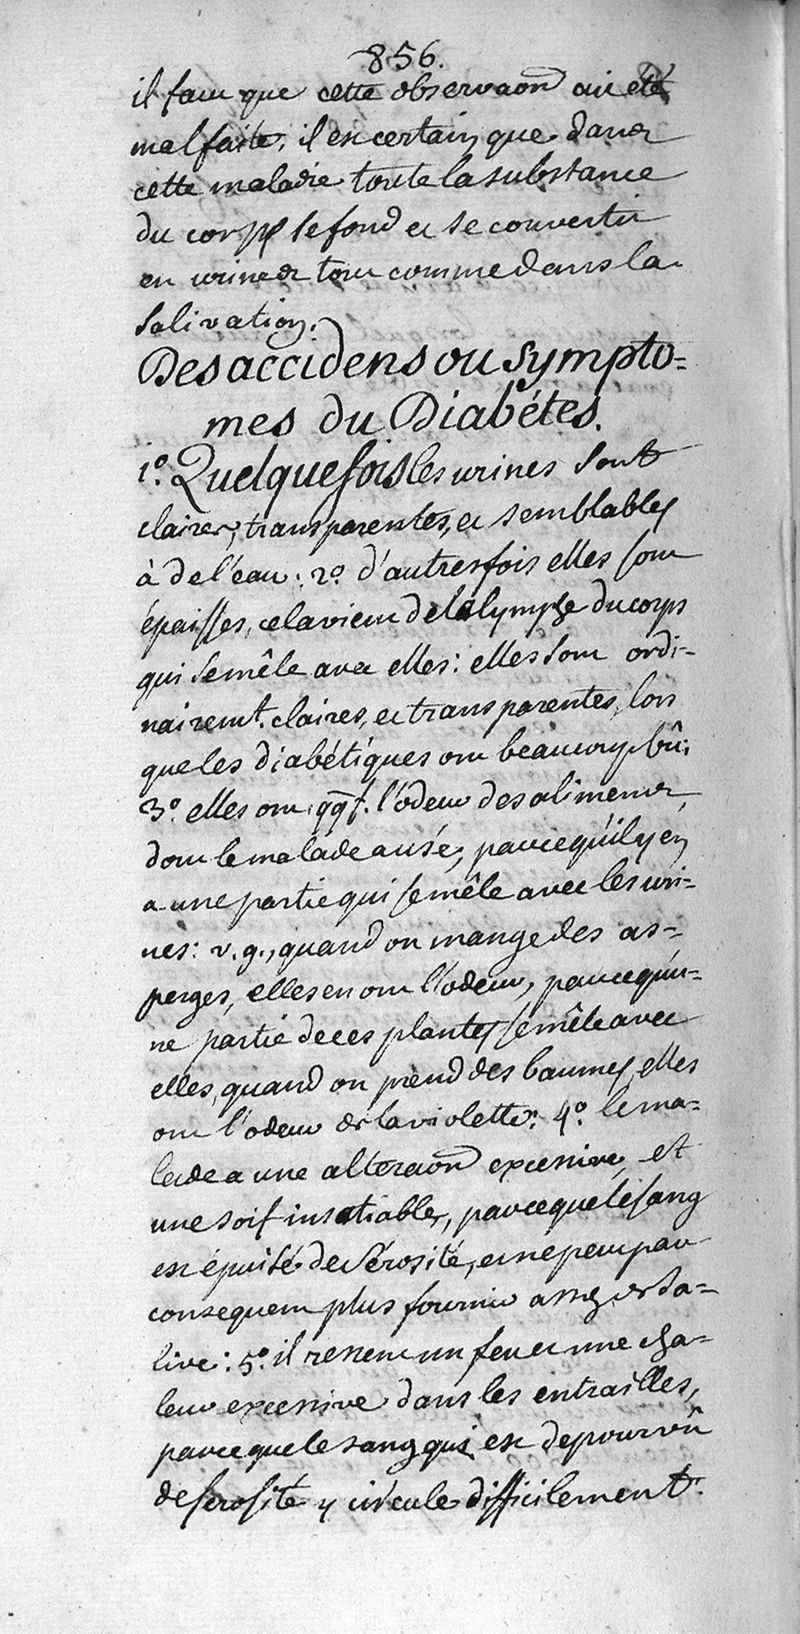 856.
il faut que cette observaon ait été
mal faite, il est certain que dans
cette maladie toute la substance
du corps se fond et se convertit
en urines tout comme dans la
salivation.
Des accidens ou sympto=
mes du Diabétes.
1º. Quelquefois les urines sont
claires, transparentes, et semblables
à de l'eau : 2º. d'autresfois elles sont
épaisses, cela vient de la lymphe du corps
qui se mêle avec elles : elles sont ordi=
nairemt. claires, et transparentes, lors
que les diabétiques ont beaucoup bû;
3º. elles ont qqf. l'odeur des alimens,
dont le malade a usé, parcequ'il y en
a une partie qui se mêle avec les uri=
nes : v. g., quand on mange des as=
perges, elles en ont l'odeur, parcequ'u=
ne partie de ces plantes se mêle avec
elles, quand on prend des baumes, elles
ont l'odeur de la violette. 4º. le ma=
lade a une alteraon excessive, et
une soif insatiable, parceque le sang
est épuisé de sérosité, et ne peut par
consequent plus fournir assez de sa=
live : 5º. il ressent un feu et une cha=
leur excessive dans les entrailles,
parceque le sang qui est depourvû
de serosité y circule difficilement.